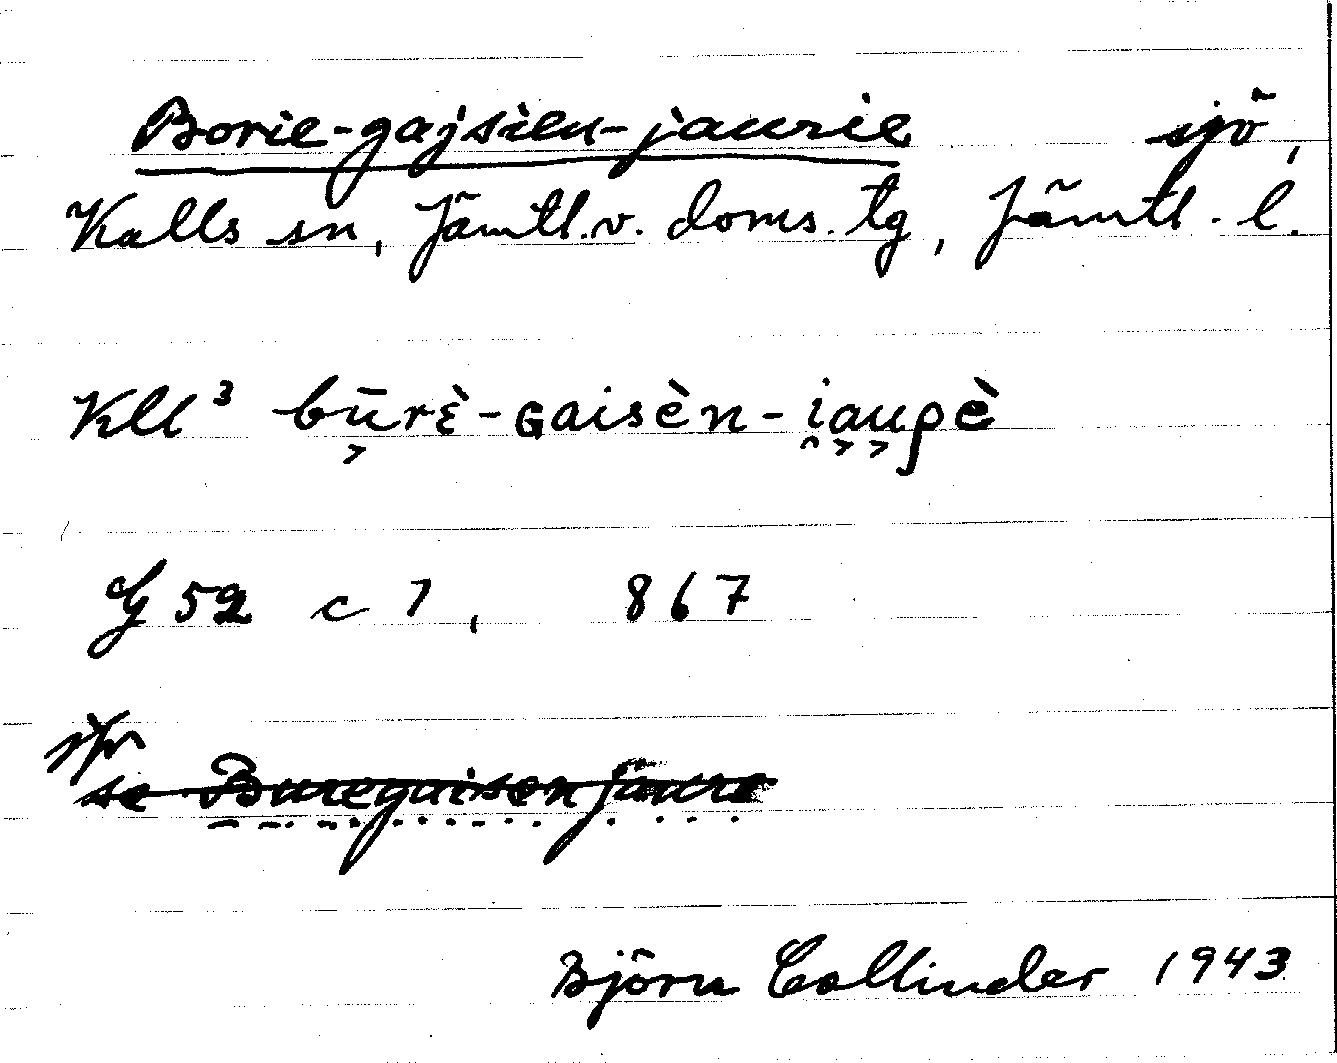 Borie-gajsien-jaurie sjö,
Kalls sn, Jämtl.v. doms.tg, Jämtl. l.
Kll³ bū̬rɛ̀-ɢaisèn-i̯a̬u̬ρè
G 52 c 7, 867
jfr
se Buregaisenjaure
Björn Collinder 1943